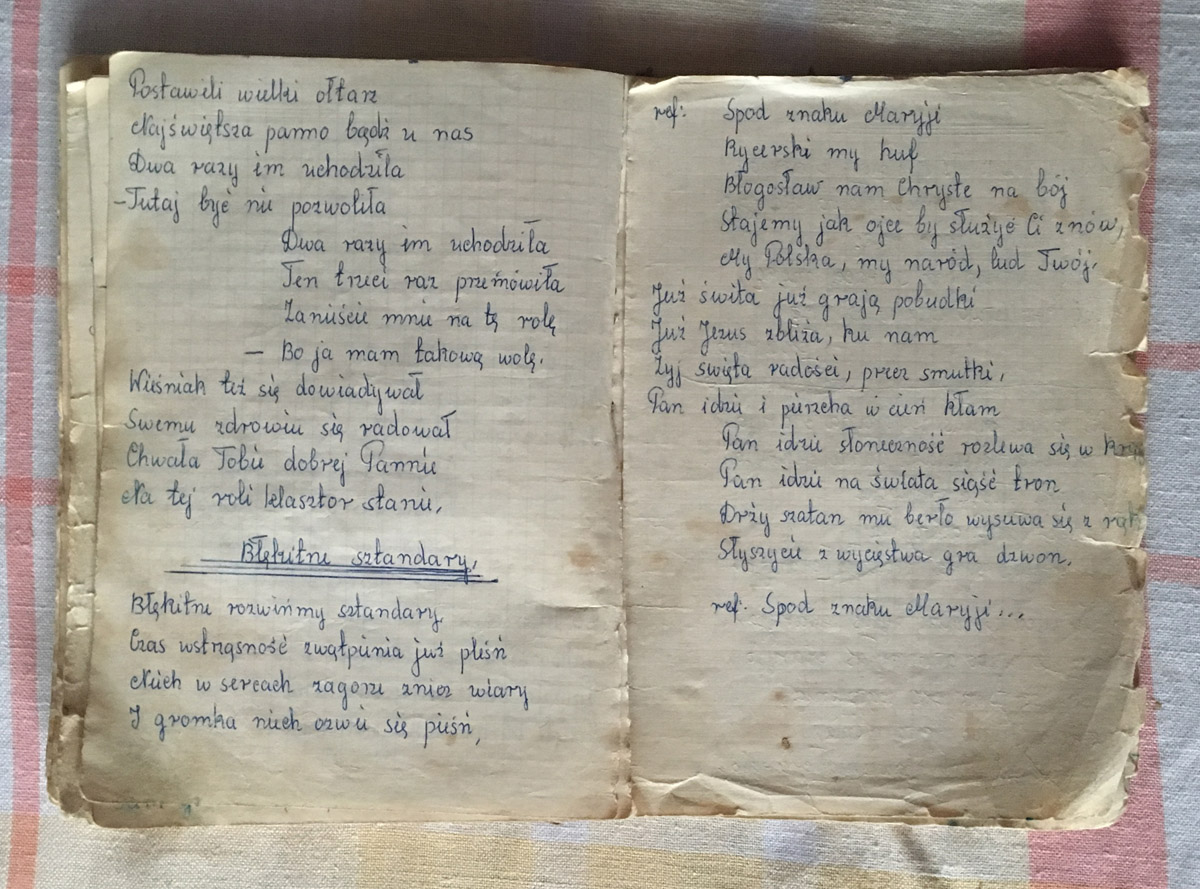 Postawili wielki ołtarz
Najświętsza panno bądź u nas
Dwa razy im uchodziła
-Tutaj być nie pozwoliła
Dwa razy im uchodziła
Ten trzeci raz przemówiła
Zanieście mnie na tę rolę
- Bo ja mam takową wolę.
Wieśniak też się dowiadywał
Swemu zdrowiu się radował
Chwała Tobie dobrej Pannie
Na tej roli klasztor stanie,
Błękitne sztandary,
Błękitne rozwińmy sztandary,
Czas wstrząsność zwątpienia już pleśń
Niech w sercach zagorze znicz wiary
I gromka niech ozwie się pieśń,
ref: Spod znaku Maryji
Rycerski my huf
Błogosław nam Chryste na bój
Stajemy jak ojce by służyć Ci znów,
My Polska, my naród, lud Twój.
Już świta już grają pobudki
Już Jezus zbliża, ku nam
Żyj święta radości, precz smutki,
Pan idzie i pierzcha w cień kłam
Pan idzie słoneczność rozlewa się w
Pan idzie na świata siąść tron
Drży szatan mu berło wysuwa się z rąk
Słyszycie zwycięstwa gra dzwon.
ref. Spod znaku Maryji...